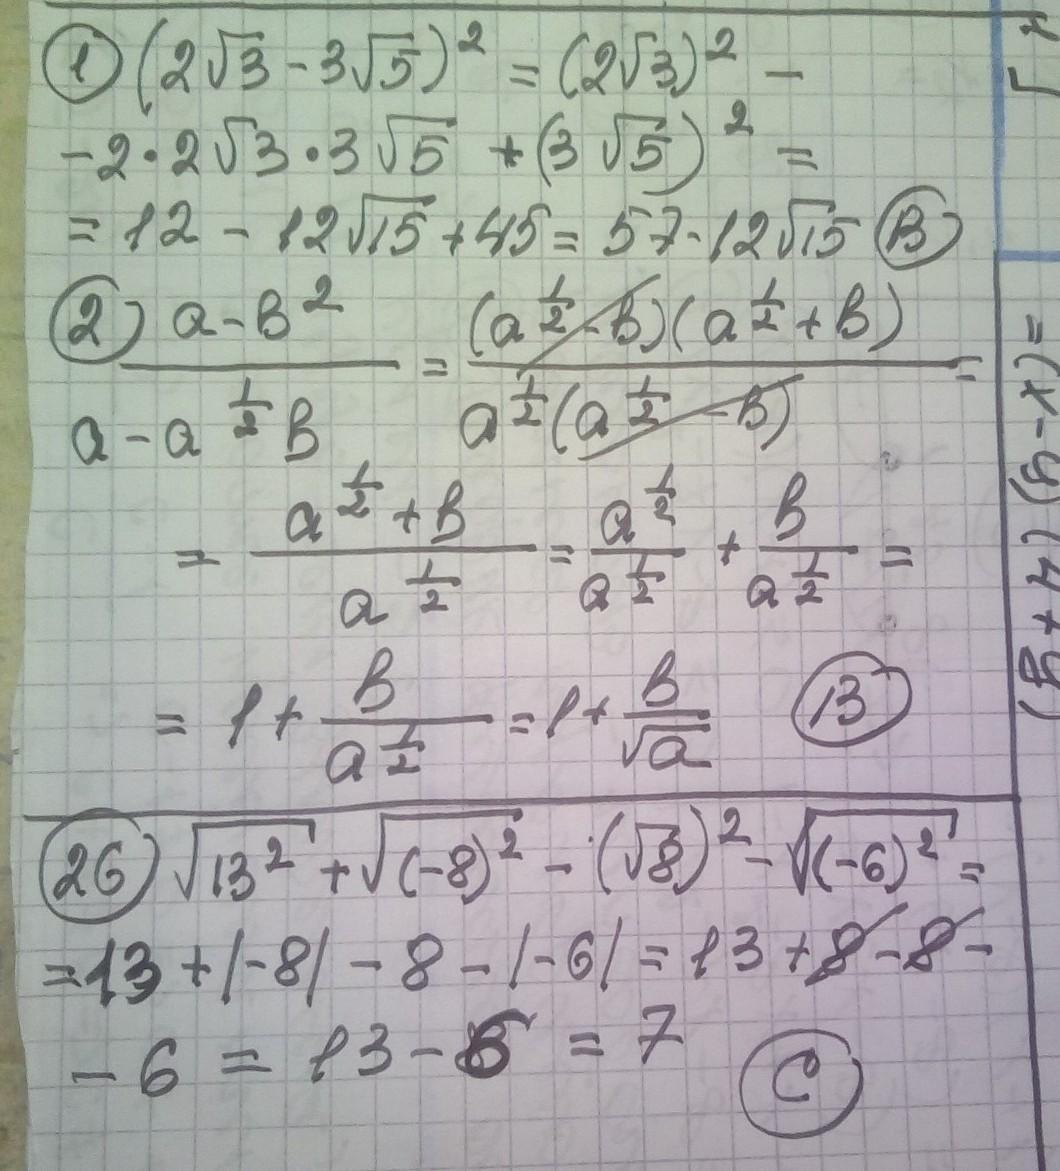 ① (2√3 - 3√5)² = (2√3)² -
- 2 • 2√3 • 3√5 + (3√5)² =
= 12 - 12√15 + 45 = 57 - 12√15 Ⓑ
② (a - b²)/(a - a^(1/2) b) = ((a^(1/2) - b)(a^(1/2) + b))/(a^(1/2)(a^(1/2) - b)) =
= (a^(1/2) + b)/(a^(1/2)) = a^(1/2)/a^(1/2) + b/a^(1/2) =
= 1 + b/a^(1/2) = 1 + b/√a Ⓑ
㉖ √(13²) + √((-8)²) - (√8)² - √((-6)²) =
= 13 + |-8| - 8 - |-6| = 13 + 8 - 8 -
- 6 = 13 - 6 = 7 Ⓒ